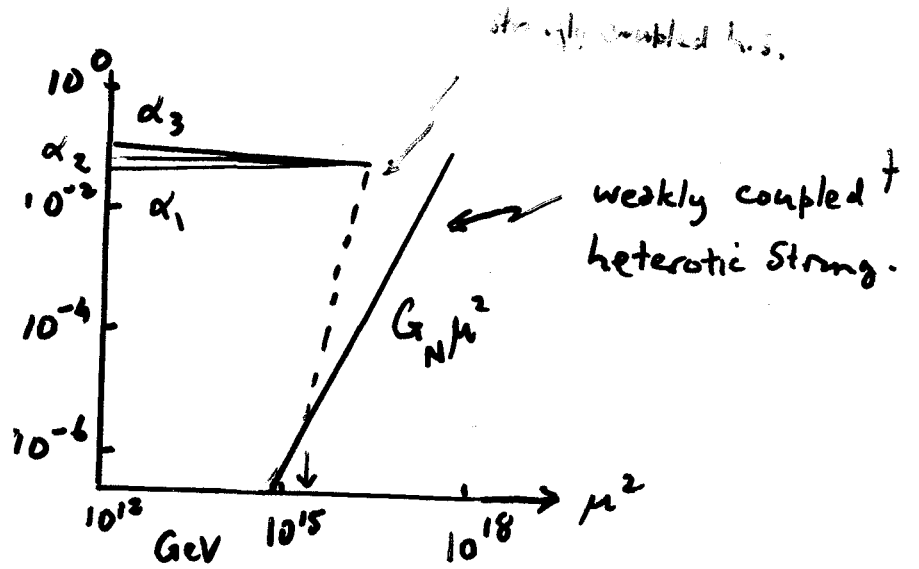 strongly coupled h.s.
10⁰
α₃
α₂
10⁻²
α₁
weakly coupled †
heterotic String.
10⁻⁴
G_N μ²
10⁻⁶
10¹²
GeV
10¹⁵
10¹⁸
μ²